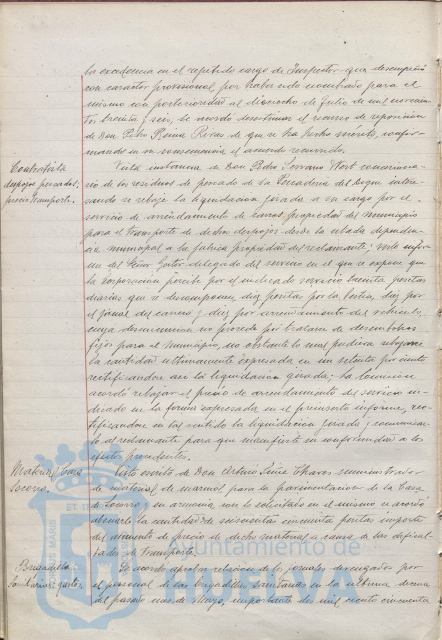 la excedencia en el repetido cargo de Inspector que desempeñó
con caracter provisional por haber sido nombrado para el
mismo con posterioridad al dieciocho de Julio de mil novecien-
tos treinta y seis, se acordó desestimar el recurso de reposición
de Don Pedro Reina Rivas de que se ha hecho mérito, confir-
mando en su consecuencia el acuerdo recurrido.
Contratista
despojos pescados,
precio transporte.
Vista instancia de Don Pedro Serrano Wert concesiona-
rio de los residuos de pescado de la Pescadería del Bogue intere-
sando se rebaje la liquidación girada a su cargo por el
servicio de arrendamiento de carros propiedad del Municipio
para el transporte de dichos despojos desde la citada dependen-
cia municipal a la fabrica propiedad del reclamante; visto infor-
me del Señor Gestor delegado del servicio en el que se expone que
la Corporación percibe por el indicado servicio treinta pesetas
diarias que se descomponen diez pesetas por la bestia, diez por
el jornal del carrero y diez por arrendamiento del vehiculo,
cuya disminución no procede por tratarse de desembolsos
fijos para el Municipio, no obstante lo cual pudiera rebajarse
la cantidad ultimamente expresada en un setenta por ciento
rectificandose asi la liquidación girada; la Comisión
acordó rebajar el precio de arrendamiento del servicio in-
dicado en la forma expresada en el preinserto informe, rec-
tificandose en tal sentido la liquidación girada y comunican-
do al reclamante para que manifieste su conformidad a los
efectos procedentes.
Casa
Socorro.
Visto escrito de Don Arturo suministrador
de material de marmol para la pavimentacion de la Casa
de Socorro y en armonia con lo solicitado en el mismo se acordó
abonarle la cantidad de cincuenta pesetas importe
del aumento de precio de dicho material a causa a las dificul-
tades de transporte.
Brigadilla
Sanitaria, gastos.
Se acordó aprobar relación de los jornales devengados por
el personal de las brigadillas sanitarias en la ultima decena
del pasado mes de Mayo, importante de mil ciento cincuenta
Ayuntamiento de
HUELVA